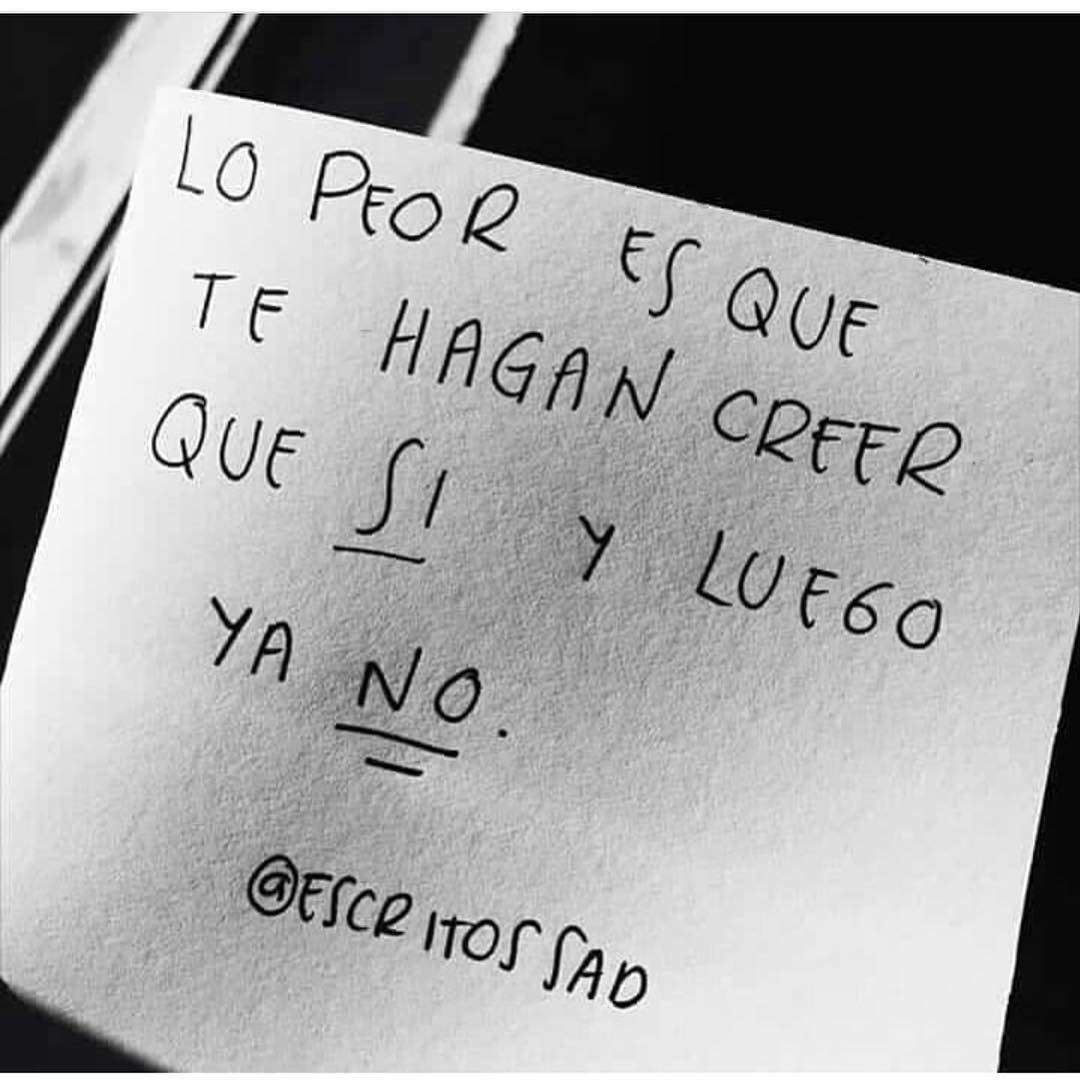 LO PEOR ES QUE
TE HAGAN CREER
QUE SI Y LUEGO
YA NO.
@ESCRITOSSAD